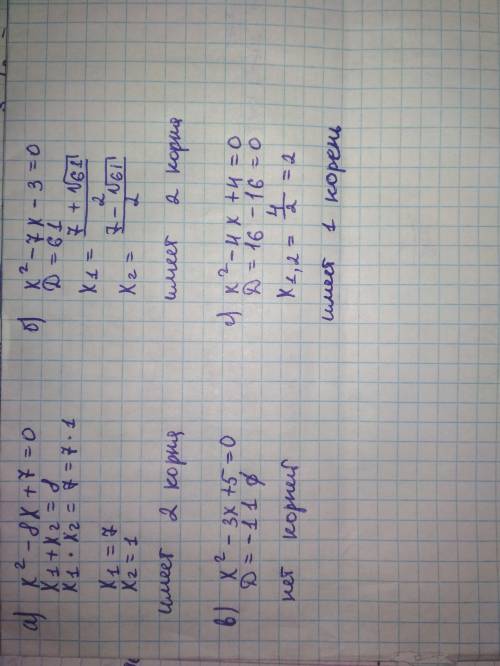 а) x² - 8x + 7 = 0
x₁ + x₂ = 8
x₁ · x₂ = 7 = 7 · 1
x₁ = 7
x₂ = 1
имеет 2 корня
б) x² - 7x - 3 = 0
D = 61
x₁ = (7 + √61)/2
x₂ = (7 - √61)/2
имеет 2 корня
в) x² - 3x + 5 = 0
D = -11 ∅
нет корней
г) x² - 4x + 4 = 0
D = 16 - 16 = 0
x₁,₂ = 4/2 = 2
имеет 1 корень